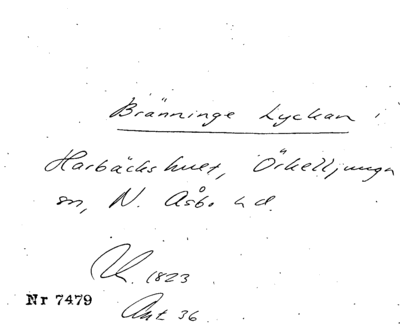 Bränninge Lyckan
Harbäckshult, Örkelljunga
sn, N. Åsbo hd.
Lh. 1823
Nr 7479
Ant 36